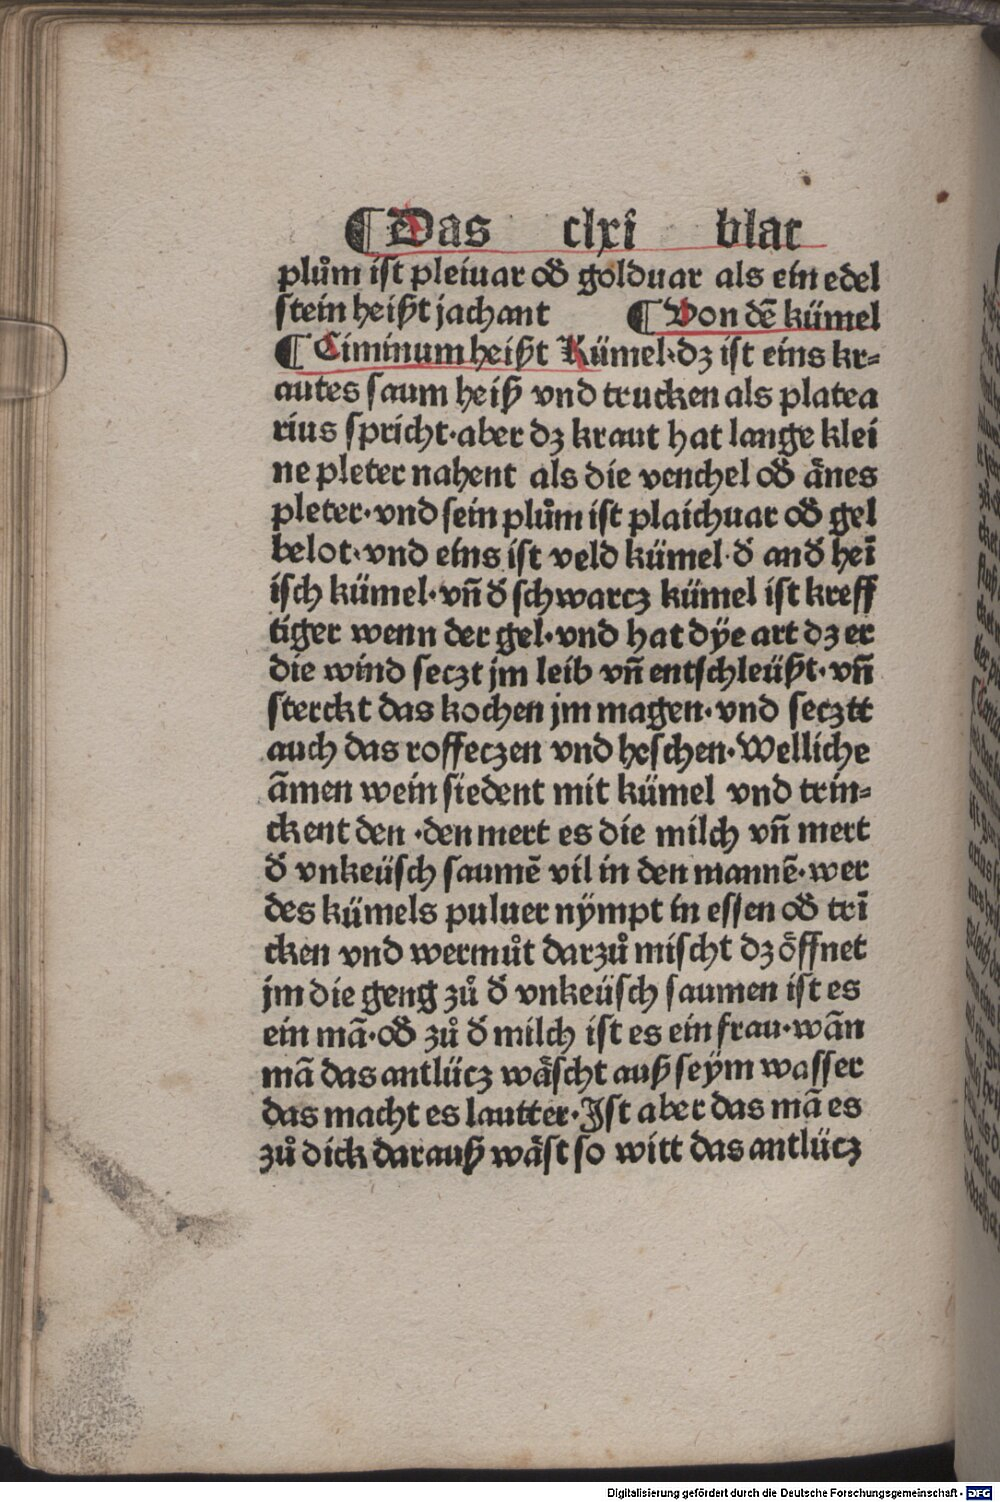 ¶Das clxi blat
plům ist pleiuar od̄ golduar als ein edel
stein heißt jachant ¶Von dē kümel
¶Ciminum heißt Kümel·dz ist eins kr⸗
autes saum heiß vnd trucken als platea
rius spricht·aber dz kraut hat lange klei
ne pleter nahent als die venchel od̄ änes
pleter·vnd sein plům ist plaichuar od̄ gel
belot·vnd eins ist veld kümel·d̄ and̄ heī
isch kümel·vn̄ d̄ schwarcz kümel ist kreff
tiger wenn der gel·vnd hat dÿe art dz er
die wind seczt jm leib vn̄ entschleüßt·vn̄
sterckt das kochen jm magen·vnd secztt
auch das roffeczen vnd heschen·Welliche
āmen wein siedent mit kümel vnd trin⸗
ckent den ·den mert es die milch vn̄ mert
d̄ vnkeüsch saumē vil in den mannē·wer
des kümels puluer nÿmpt in essen od̄ trī
cken vnd wermůt darzů mischt dz öffnet
jm die geng zů d̄ vnkeüsch saumen ist es
ein mā·od̄ zů d̄ milch ist es ein frau·wān
mā das antlücz wäscht auß seÿm wasser
das macht es lautter·Ist aber das mā es
zů dick darauß wäst so witt das antlücz
Digitalisierung gefördert durch die Deutsche Forschungsgemeinschaft - DFG